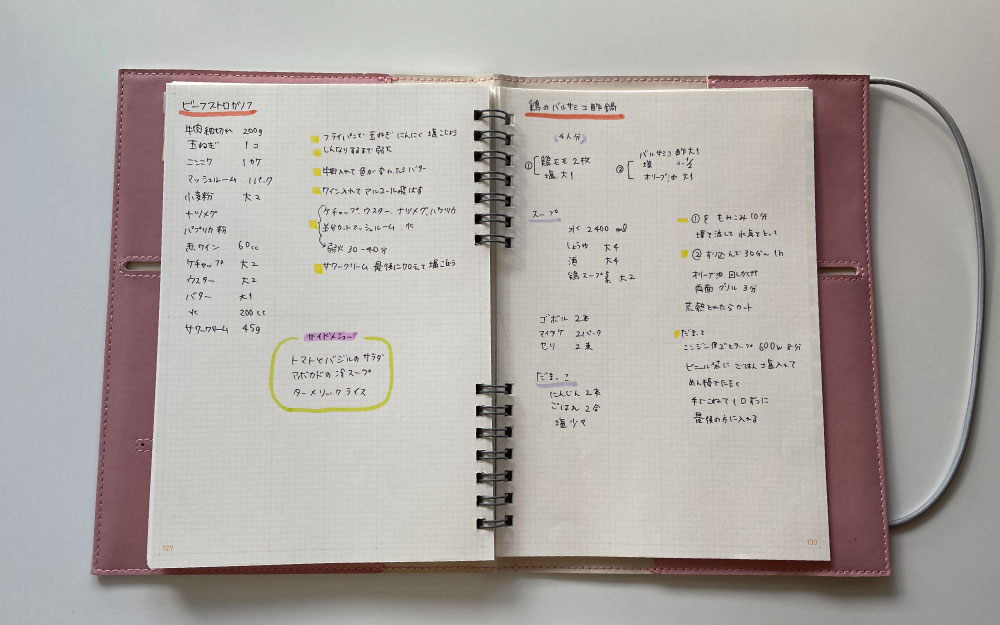 ビーフストロガノフ
牛肉細切れ 200g
玉ねぎ 1コ
ニンニク 1カケ
マッシュルーム 1パック
小麦粉 大2
ナツメグ
パプリカ粉
赤ワイン 60cc
ケチャップ 大2
ウスター 大2
バター 大1
水 200cc
サワークリーム 45g
フライパンで玉ねぎ にんにく 塩こしょう
しんなりするまで弱火
牛肉入れて色が変わったらバター
ワイン入れてアルコール飛ばす
ケチャップ、ウスター、ナツメグ、パプリカ
半分カットマッシュルーム、水
弱火30-40分
サワークリーム 最後に加えて塩こしょう
サイドメニュー
トマトとバジルのサラダ
アボカドの冷スープ
ターメリックライス
129
鶏のバルサミコ酢鍋
《4人分》
① 鶏モモ 2枚
塩 大1
② バルサミコ酢 大1
塩 小1/2
オリーブ油 大1
スープ
水 2400ml
しょうゆ 大4
酒 大4
鶏スープ素 大2
ゴボウ 2本
マイタケ 2パック
セリ 2束
だまっこ
にんじん 2本
ごはん 2合
塩 少々
①をもみこみ10分
水気をとり
② すり込んで30分〜1h
オリーブ油 回しかけて
両面グリル 3分
荒熱とれたらカット
だまっこ
ニンジン 皮ごとラップ 600w 8分
ビニール袋にごはん、塩入れて
めん棒でたたく
手でこねて1口ずつに
最後の方に入れる
130